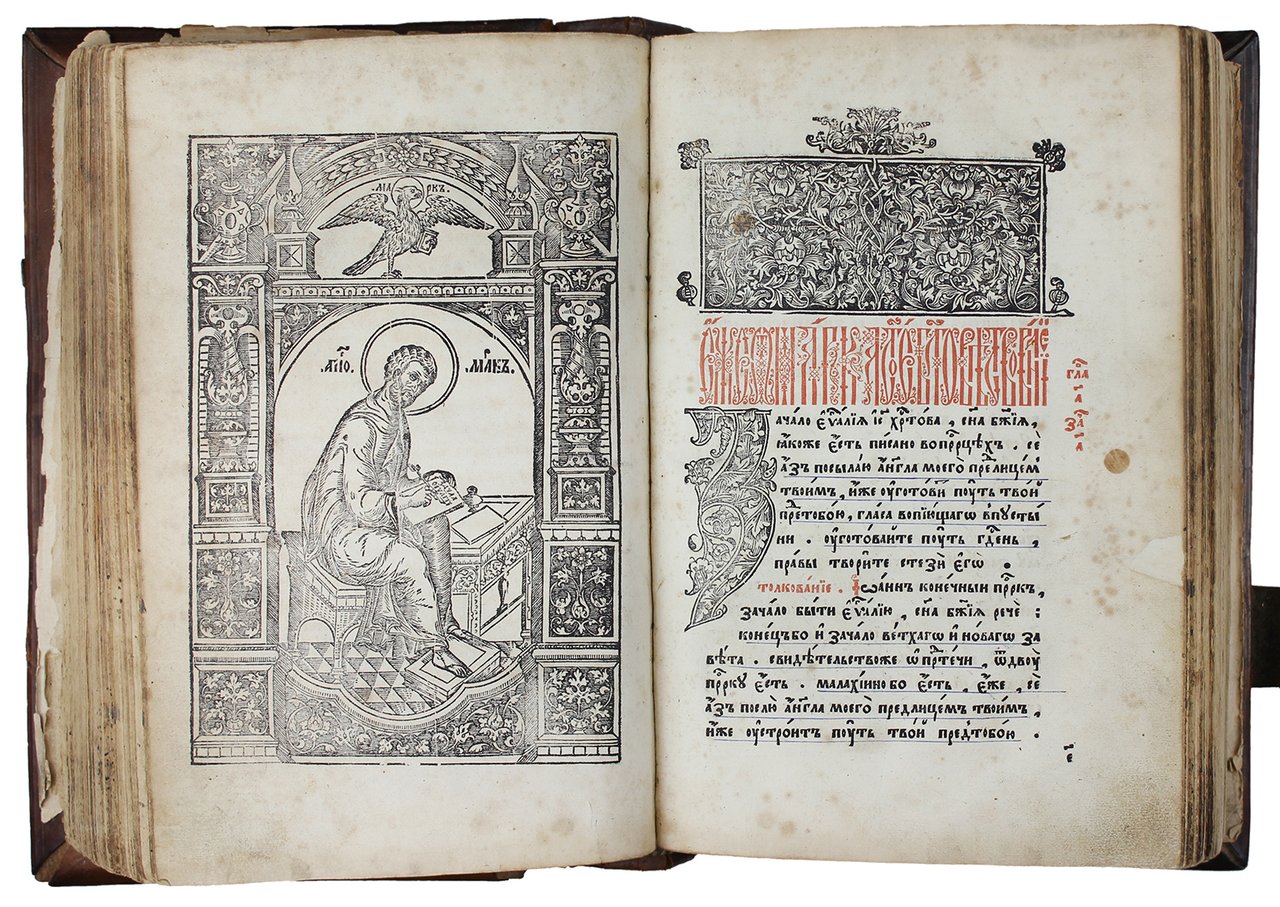 МАРКЪ.
АПⷭ҇О. МАРКЪ.
Зачало є҆ѵⷢ҇алїѧ і҆с҃ хрⷭ҇това , сн҃а бж҃їѧ ,
ꙗ҆коже є҆́сть писано во прⷪ҇рцѣхъ . се
а҆́зъ посылаю а҆́нг҃ла моегѡ̀ прⷣелицемⸯ
твоимъ , и҆́же ᲂу҆готови поуть твой
прⷣетобою , гласа вопїющагѡ в̾пусты
ни . ᲂу҆готовайте поуть гдⷭ҇ень ,
пра́вы творите стези́ є҆гѡ̀ .
гла҃
а҃
заⷱ҇
а҃
толкова́нїе . І҆ѡаннъ конечныи прⷪ҇ркъ ,
зачало быти є҆ѵⷢ҇алїю , сн҃а бж҃їѧ рече̏ :
конецъбо и҆ зачало ве́тхагѡ и҆ но́вагѡ за
ве́та . свидѣтельствоже ѡ҆ прⷣтечи , ѿдвоу
прⷪ҇рку є҆́сть . малахїино бо є҆́сть , є҆́же , се
а҆́зъ послю̀ а҆́нг҃ла моегѡ̀ предлицемъ твоимъ ,
и҆́же ᲂу҆стро́итъ поуть твой предтобою .
є҃